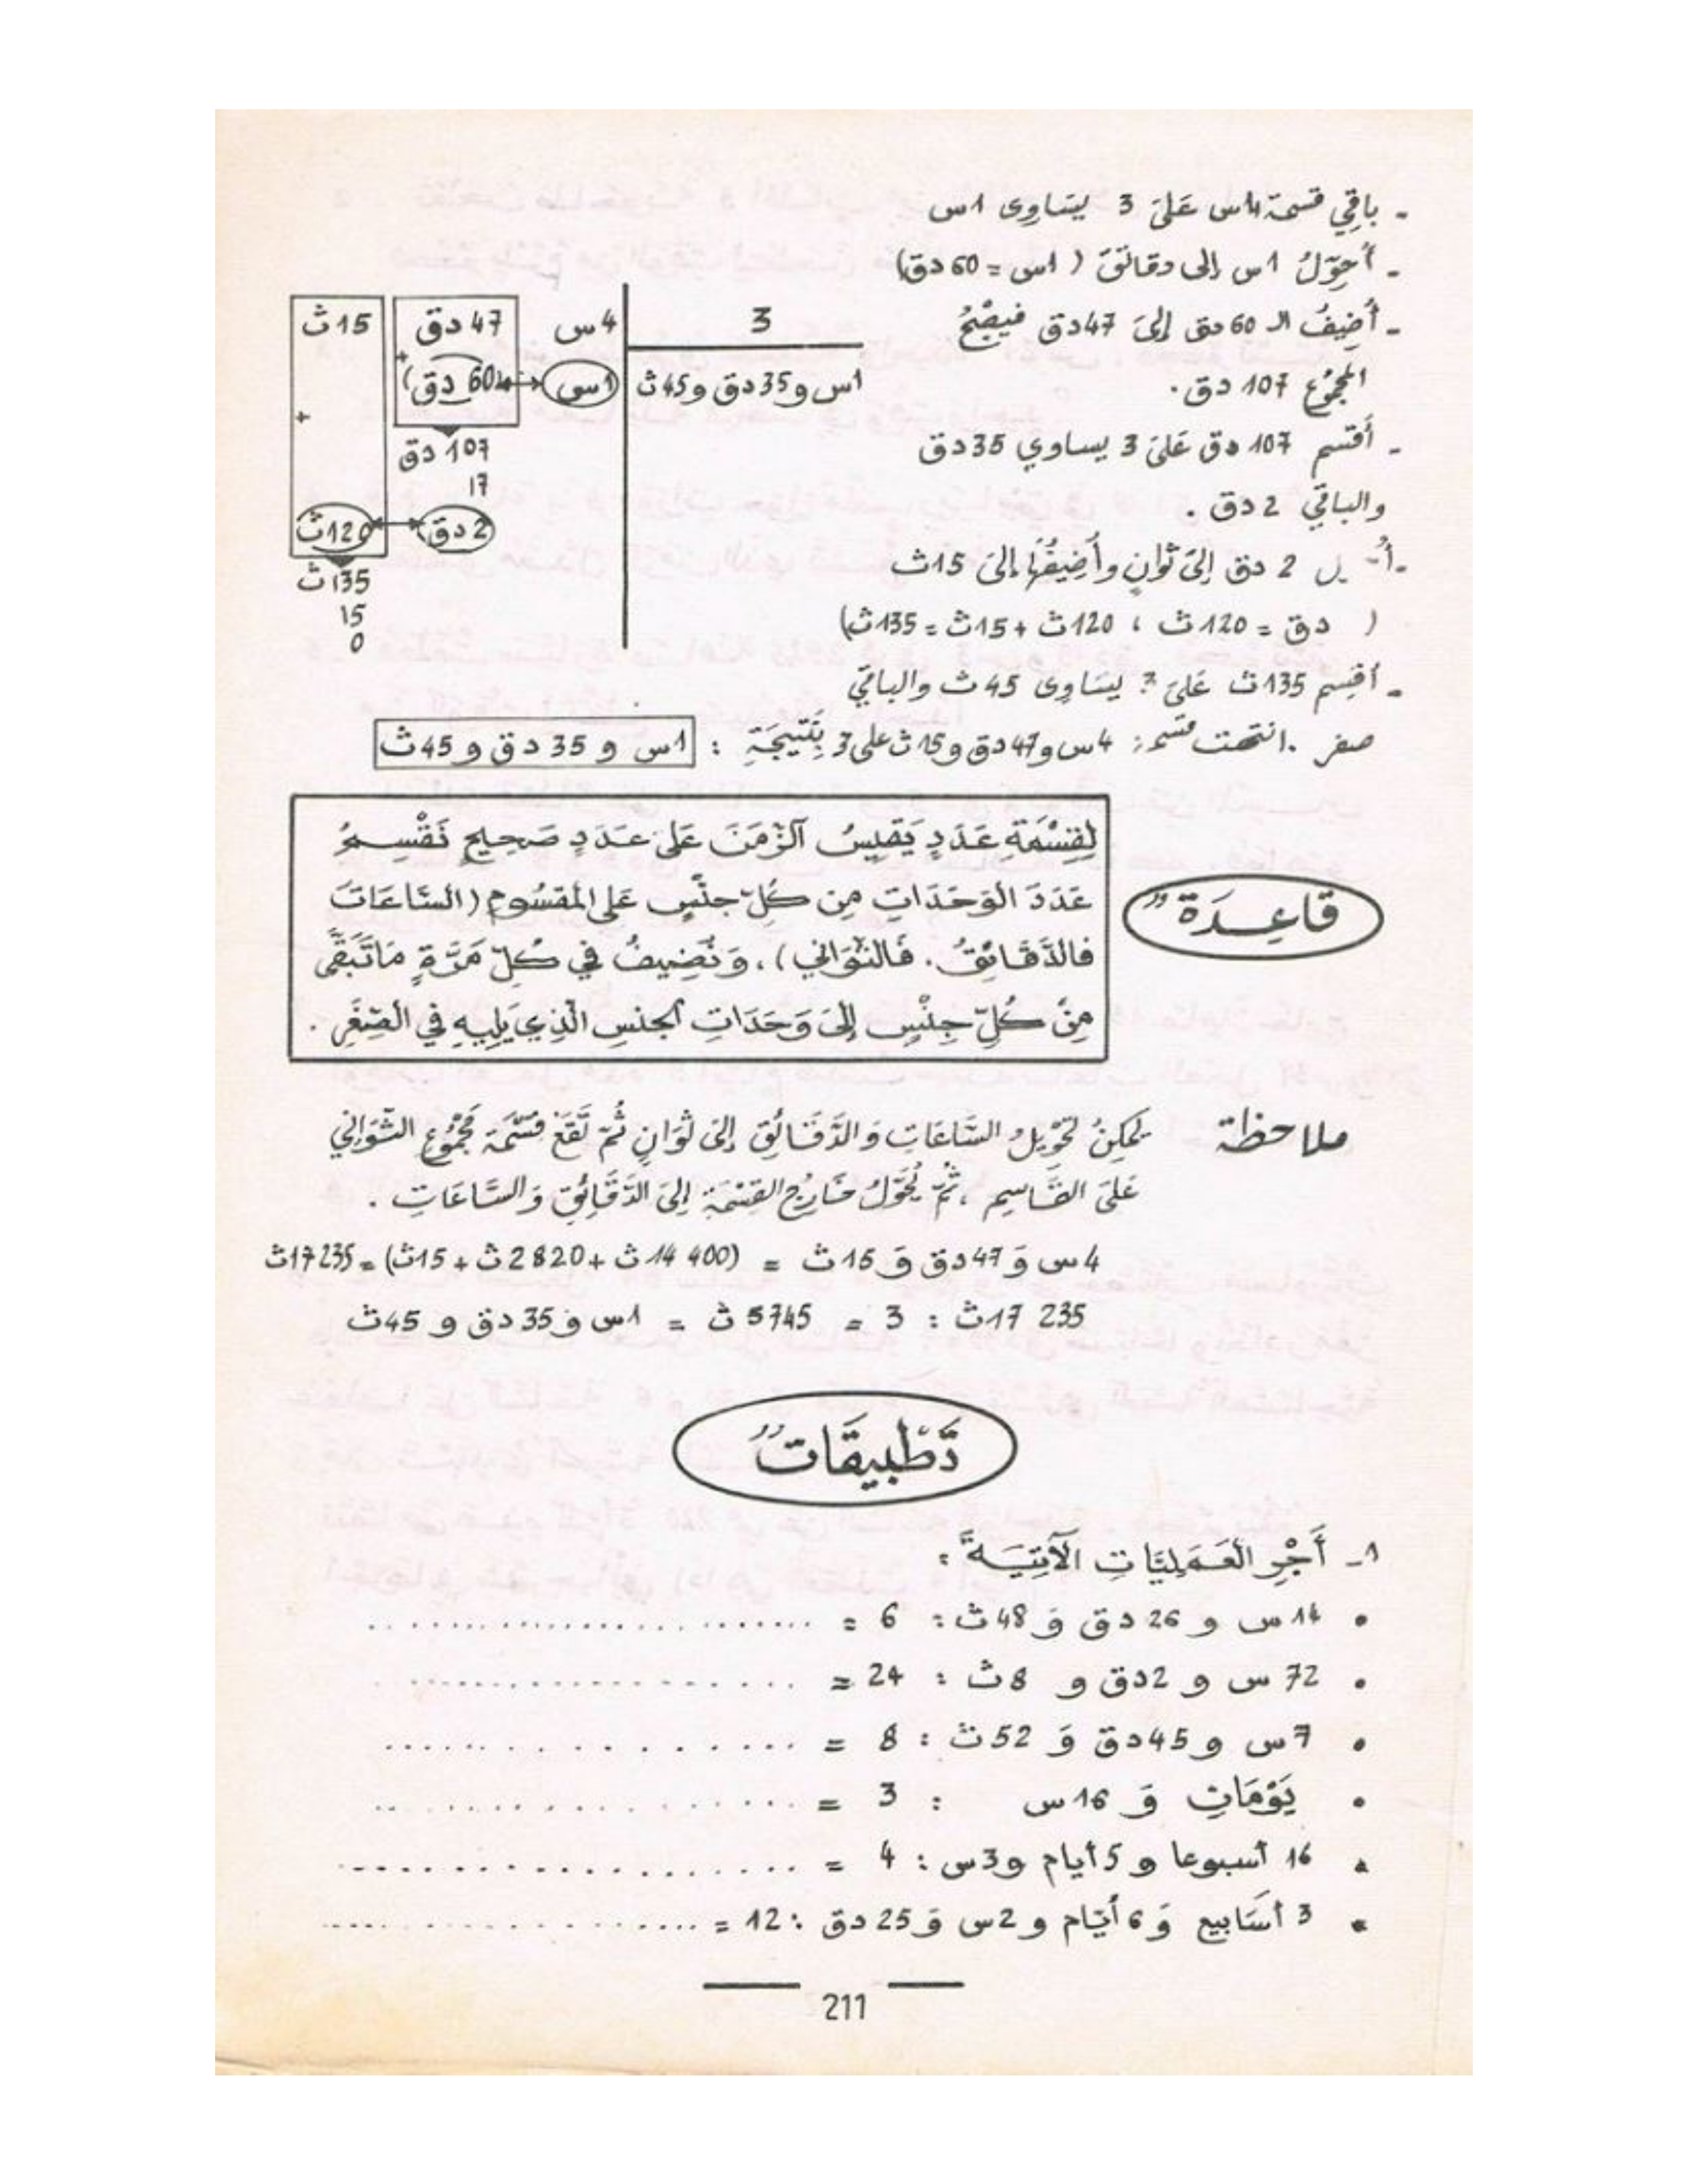 - باقي قسمة 4س عَلَى 3 يُسَاوِى 1س
- أُحَوِّلُ 1س إلى دقائقَ ( 1س = 60 دق)
- أُضِيفُ الـ 60 دق إلَى 47 دق فيصْبحُ
المجمُوع 107 دق .
- أَقسم 107 دق عَلَى 3 يساوي 35 دق
والباقي 2 دق .
2 دق إلَى ثَوانٍ وأُضِيفُهَا إلَى 15ث
( دق = 120ث ، 120ث + 15ث = 135ث)
- أقسِم 135ث عَلَى يُسَاوِى 45ث والباقي
صفر . انتهت قسمة : 4س و47دق و15ث على 3 بِنَتِيجَةِ : 1س و 35 دق و 45ث
15ث 47 دق 4س 3
+ + (60 دق) 1س 1س و35دق و45ث
107 دق
17
120ث 2 دق
135ث
15
0
قَاعِدَةٌ
لِقِسْمَةِ عَدَدٍ يَقِيسُ الزَّمَنَ عَلَى عَدَدٍ صَحِيحٍ نَقْسِمُ
عَدَدَ الوَحَدَاتِ مِن كُلّ جنْسٍ عَلى المقسُومِ (السَّاعَاتَ
فالدَّقَائِقُ . فَالثَّوَاني) ، وَنُضِيفُ في كُلّ مَرَّةٍ مَاتَبَقَّى
مِنْ كُلِّ جِنْسٍ إلَى وَحَدَاتِ الجنسِ الّذِي يَلِيهِ في الصِّغَرِ .
ملاحظة يُمكِنُ تَحْوِيلُ السَّاعَاتِ وَالدَّقَائِقِ إلى ثَوَانٍ ثُمّ تَقَعُ قسْمَة مَجْمُوعِ الثّوَانِي
عَلَى القَاسِمِ ، ثُمّ يُحَوَّلُ خَارِجُ القِسْمَةِ إلَى الدَّقَائِقِ وَالسَّاعَاتِ .
4س وَ47دق وَ15ث = (400 14ث + 2820ث + 15ث) = 17235ث
235 17ث : 3 = 5745ث = 1س و35دق و 45ث
تَطْبيقَاتٌ
1- أَجْرِ العَمَلِيَّاتِ الآتِيَةَ :
• 14س و 26 دق وَ 48ث : 6 = ........................
• 72 س و 2دق و 8ث : 24 = ...................
• 7س و 45دق وَ 52ث : 8 = ...................
• يَوْمَانِ وَ 16س : 3 = ...................
• 16 أسبوعا و 5 أيام و3س : 4 = ...................
• 3 أسَابيع وَ 6 أيّام و 2س وَ 25 دق : 12 = ...................
211